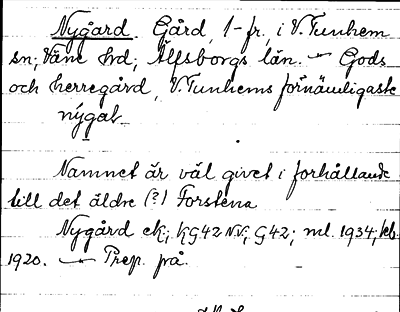 Nygård. Gård, 1-fr., i V. Tunhem
sn; Väne hd; Älfsborgs län. — Gods
och herregård, V. Tunhems förnämligaste
nýgaḷ
Namnet är väl givet i förhållande
till det äldre (?) Forstena
Nygård ek; KG42 NV; G42; ml. 1934; kb.
1920. — Prep. på.